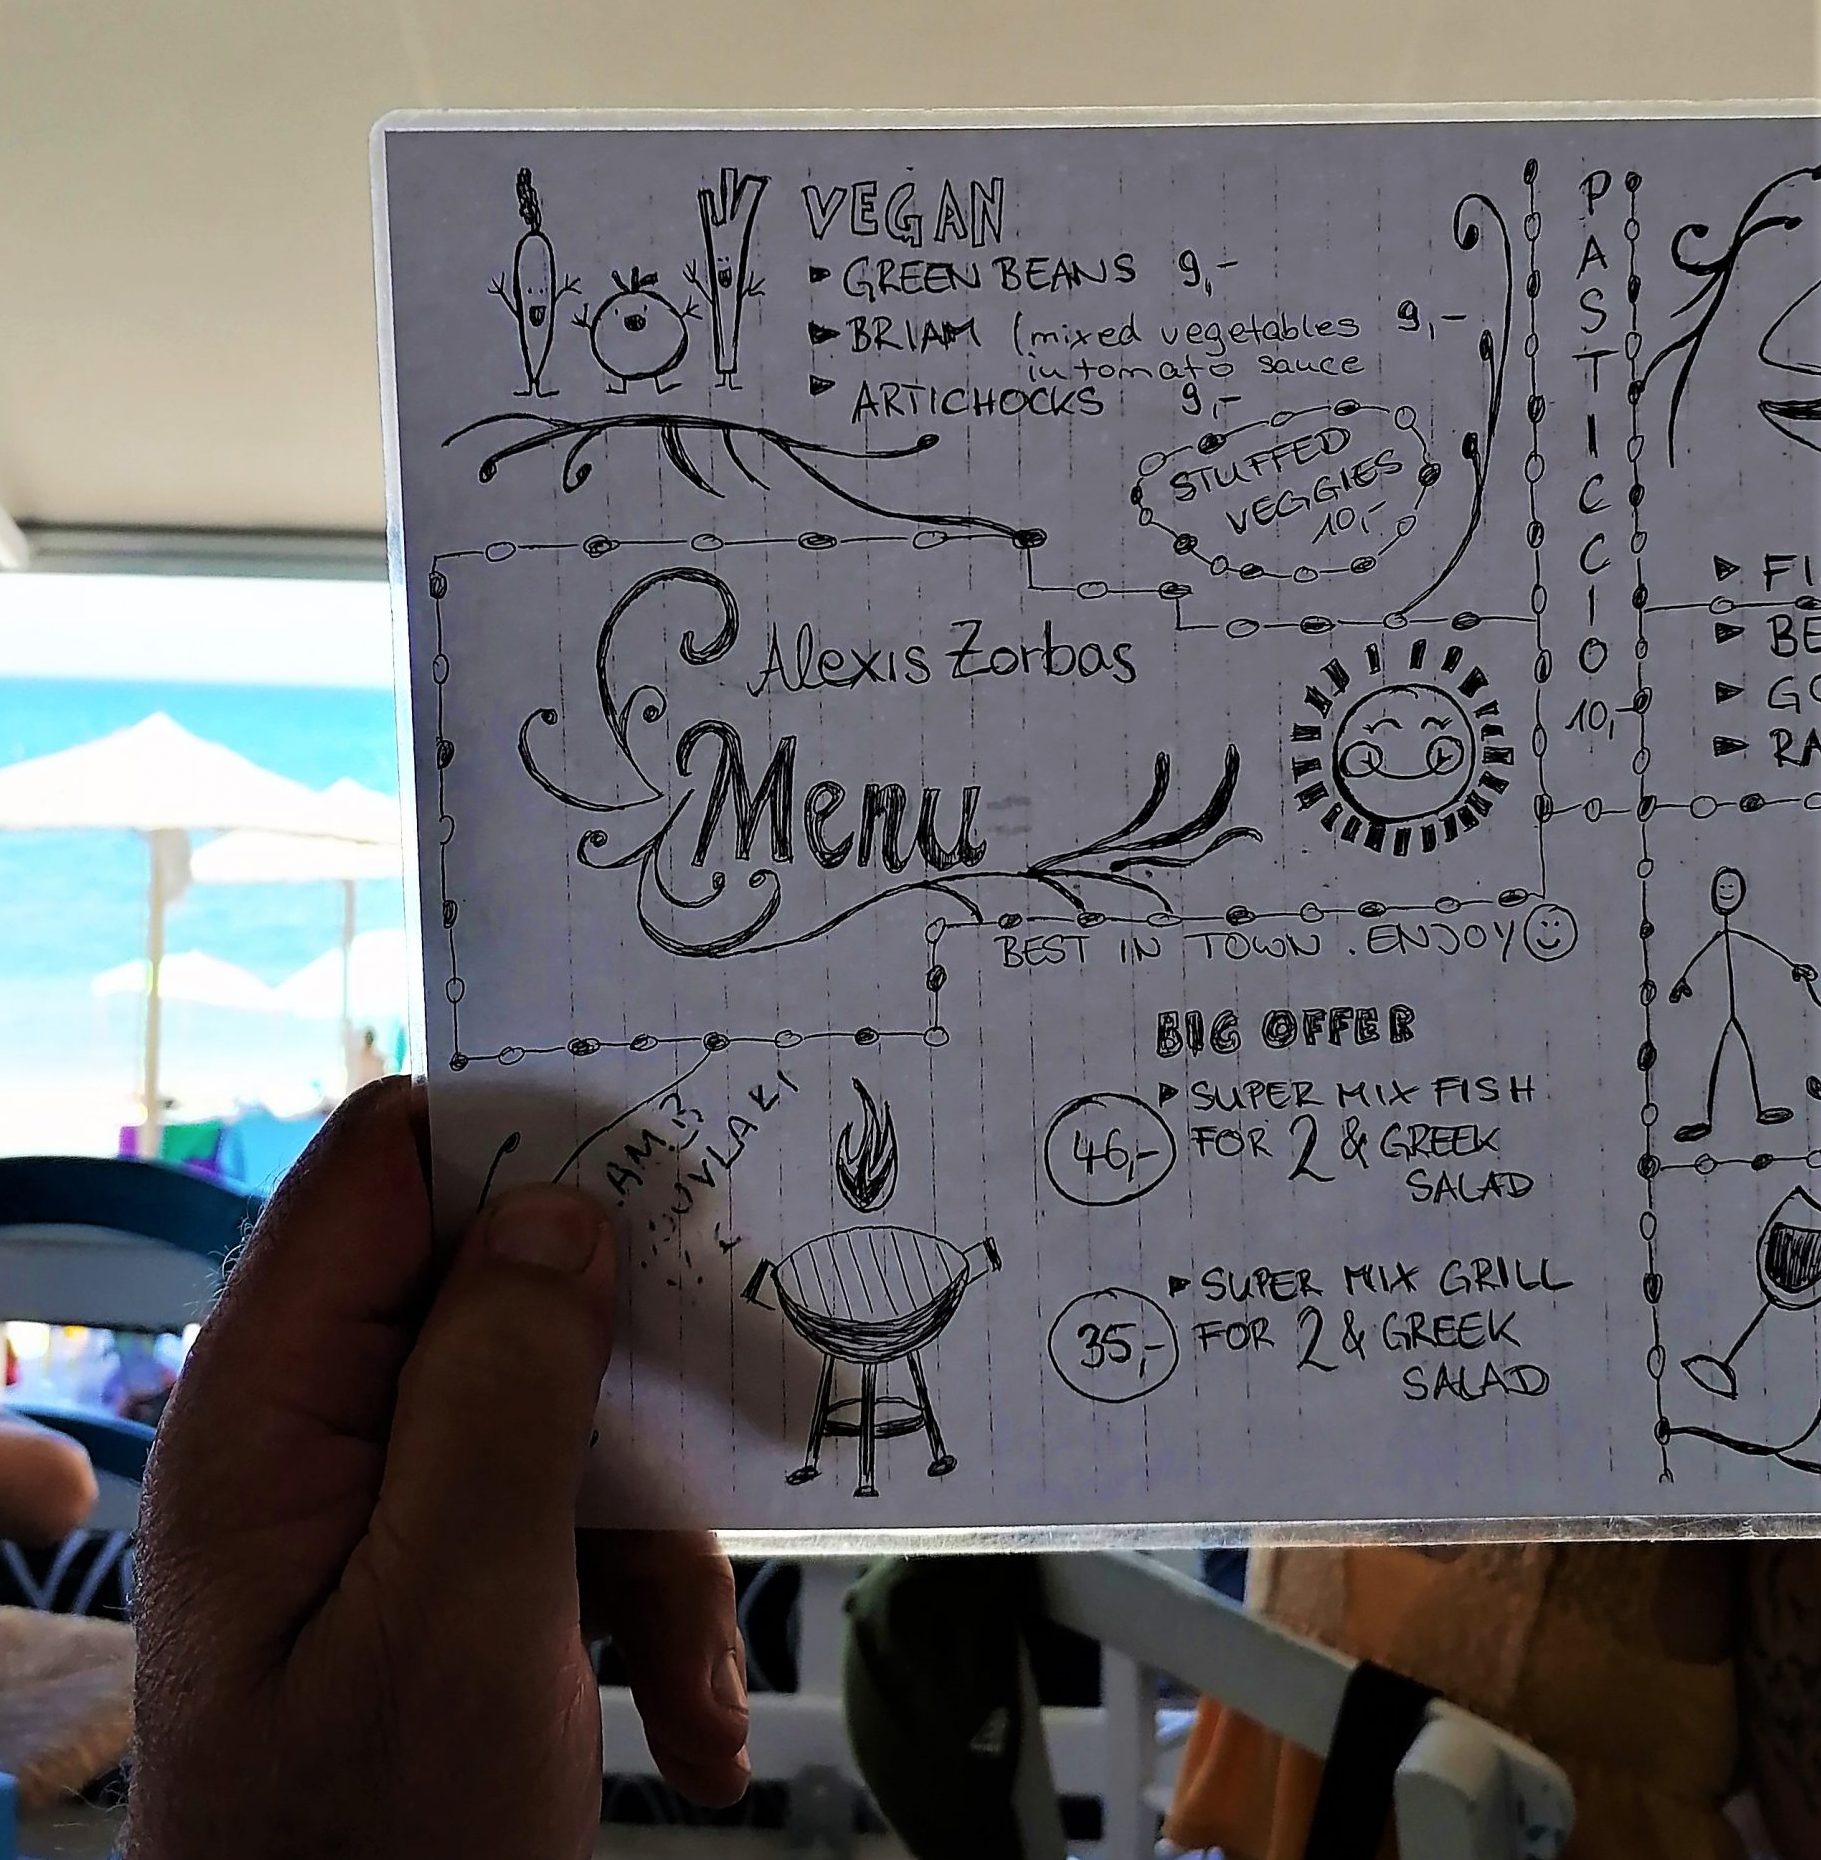 VEGAN
GREEN BEANS 9,-
BRIAM (mixed vegetables 9,-
in tomato sauce
ARTICHOCKS 9,-
STUFFED
VEGGIES
10,-
PASTICCIO
10,-
Alexis Zorbas
Menu
BEST IN TOWN. ENJOY
BIG OFFER
46,-
SUPER MIX FISH
FOR 2 & GREEK
SALAD
35,-
SUPER MIX GRILL
FOR 2 & GREEK
SALAD